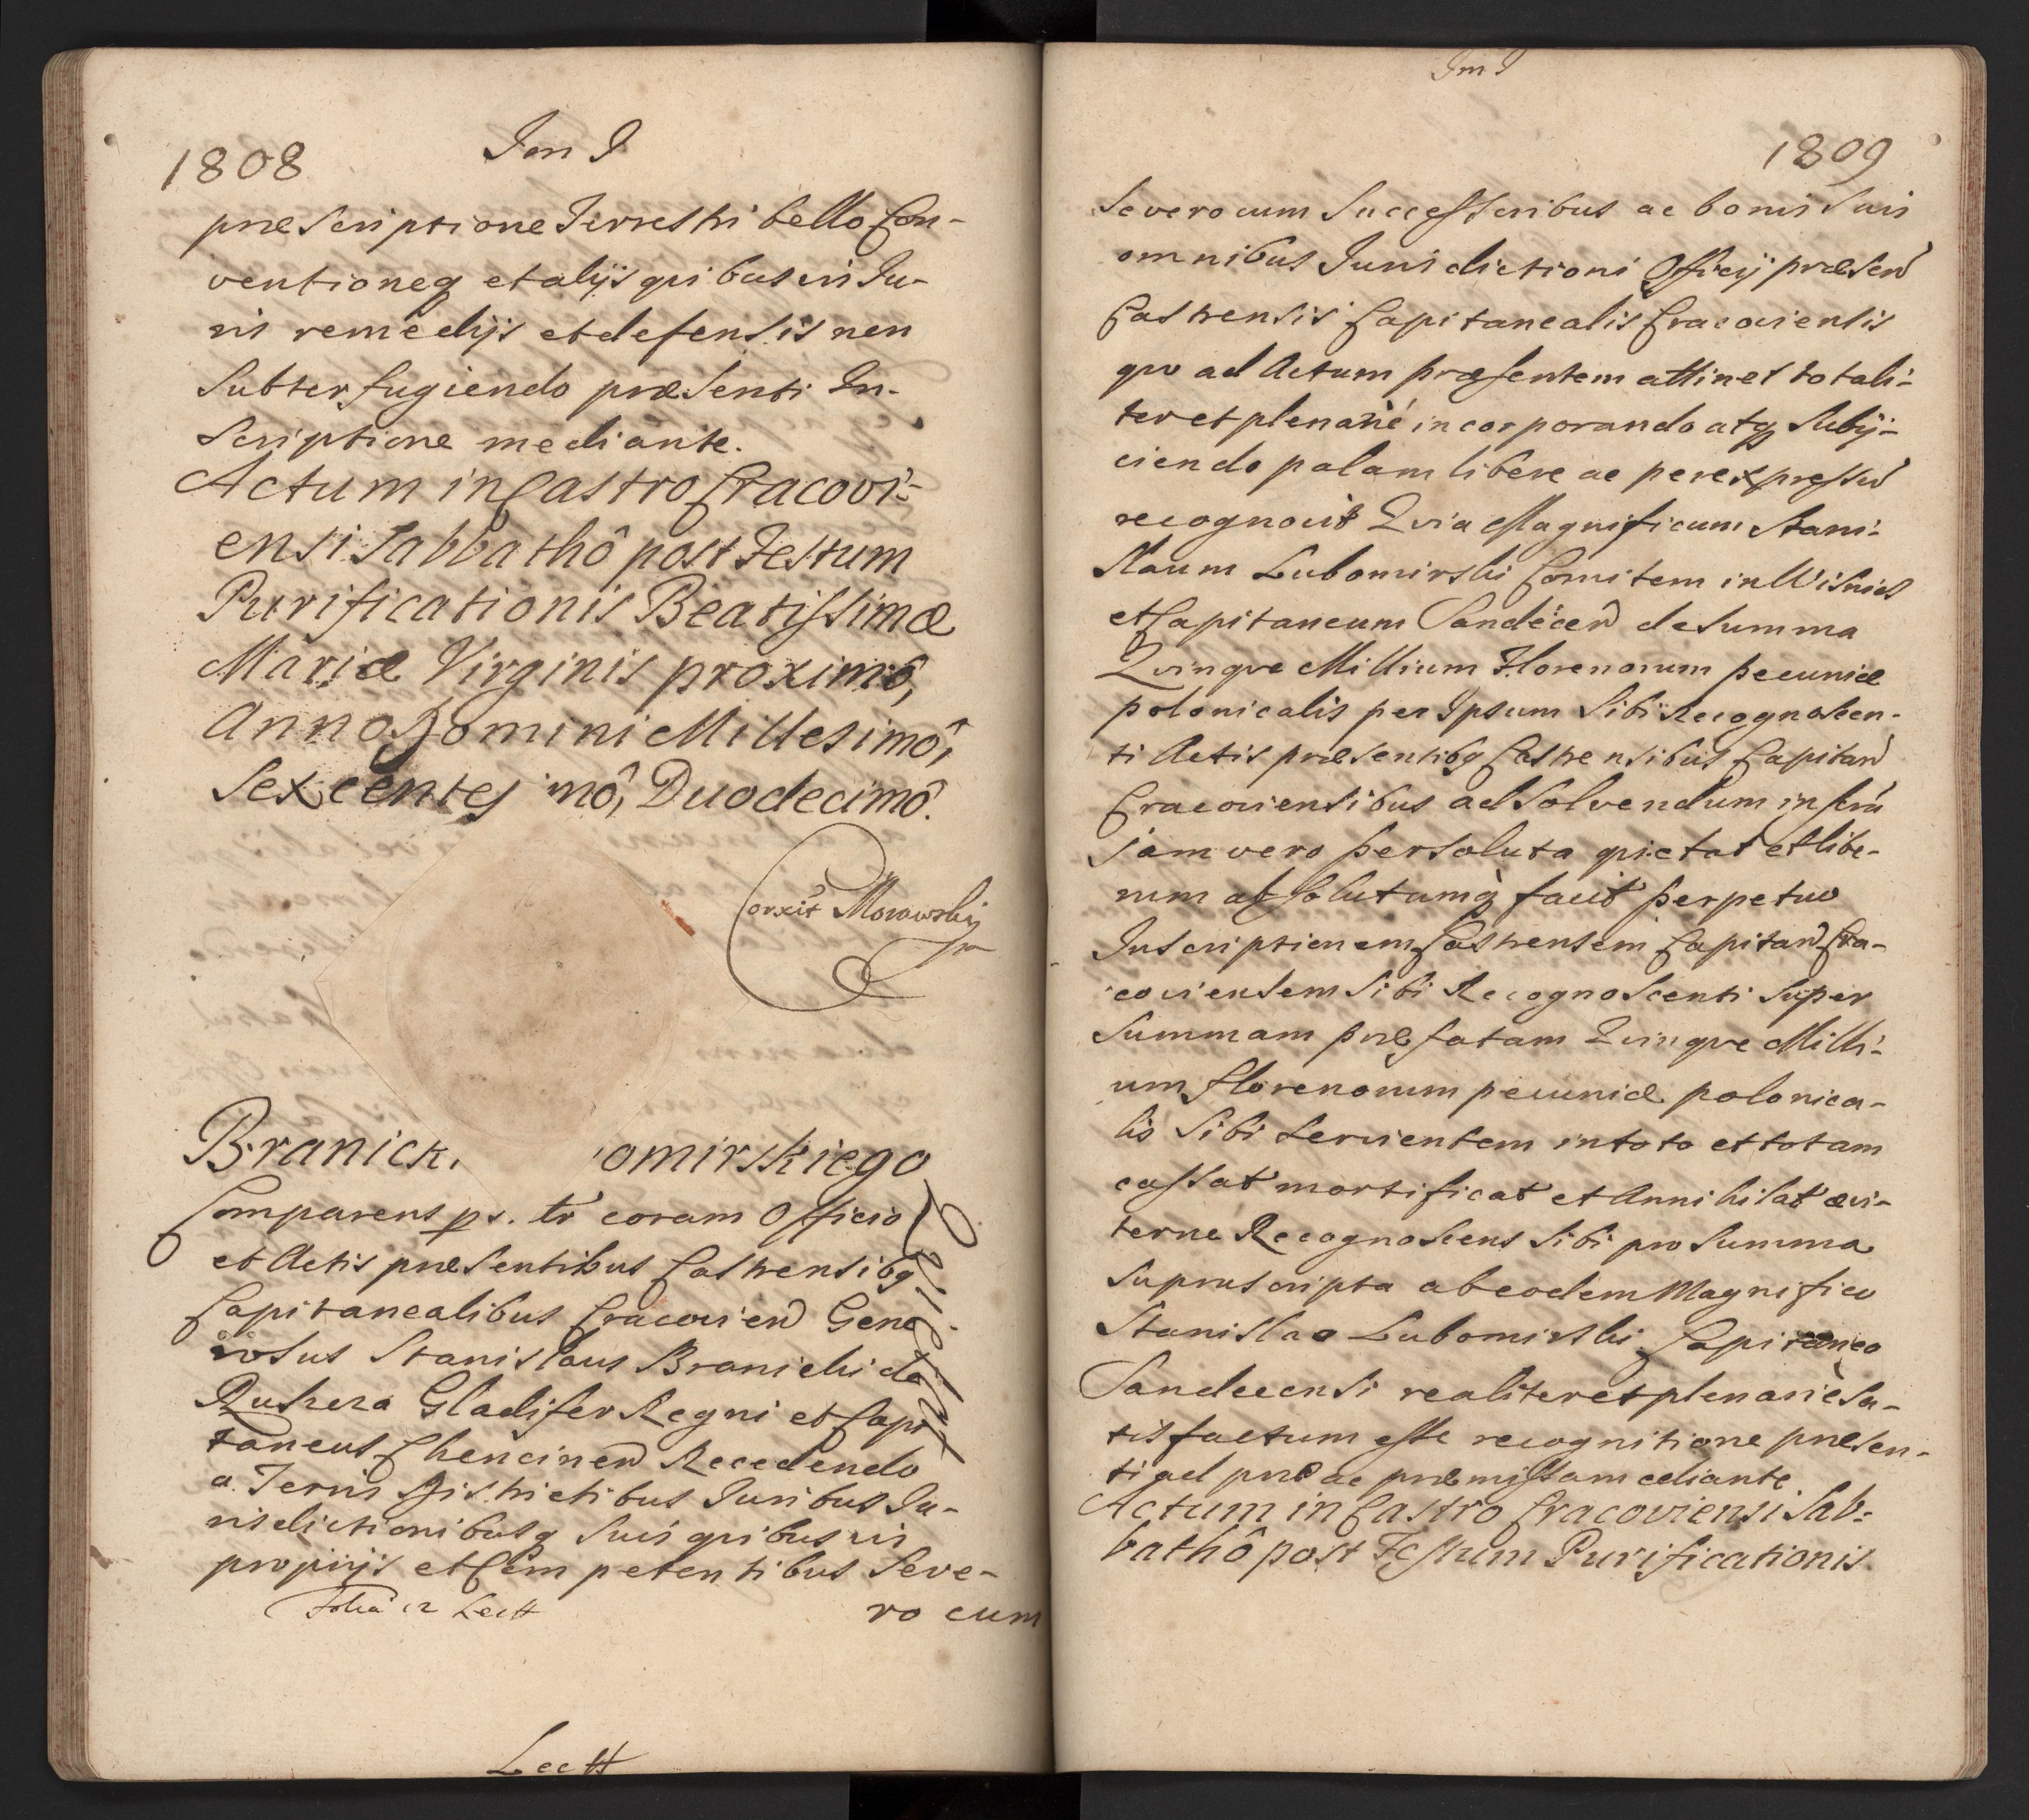 1808
Im I
præscriptione Terrestri bello Con-
ventioneq et alijs quibusvis Iu-
ris remedijs et defensis non
subterfugiendo præsenti In-
scriptione mediante.
Actum in Castro Cracovi-
ensi Sabbathô post Festum
Purificationis Beatissimæ
Mariæ Virginis proximô,
Anno Domini Millesimô,
Sexcentesimô, Duodecimô.
Correxit Morawskij
Branick. omirskiego
Quietatio
Comparens ps. tr coram Officio
et Actis præsentibus Castrensibq
Capitanealibus Cracovien Gene
rosus Stanislaus Branicki de
Ruszcza Gladifer Regni et Capi
taneus Chencinen Recedendo
a Terris Districtibus Iuribus Iu-
risdictionibusq suis quibusvis
proprijs et Competentibus seve-
ro cum
Lectt
Im I
1809
severo cum Successoribus ac bonis suis
omnibus Iurisdictioni Officij præsen
Castrensis Capitanealis Cracoviensis
quo ad Actum præsentem attinet totali-
ter et plenariè incorporando atq subij-
ciendo palam libere ac per expressum
recognovit Quia Magnificum Stani-
slaum Lubomirski Comitem in Wisnicz
et Capitaneum Sandecen de summa
Quinque Millium Florenorum pecuniæ
polonicalis per Ipsum sibi Recognoscen-
ti Actis præsentibq Castrensibus Capitan
Cracoviensibus ad solvendum inscrip
jam vero persoluta quietat et libe-
rum absolutumq facit perpetuo
Inscriptionem Castrensem Capitan Cra-
coviensem sibi Recognoscenti super
summam præfatam Quinque Milli-
um florenorum pecuniæ polonica-
lis sibi servientem in toto et totam
cassat mortificat et Annihilat ævi-
terne Recognoscens sibi pro summa
suprascripta ab eodem Magnifico
Stanislao Lubomirski Capitaneo
Sandecensi realiter et plenariè sa-
tisfactum esse recognitione præsen-
ti ad præ ac præmissa mediante
Actum in Castro Cracoviensi Sab-
bathô post Festum Purificationis